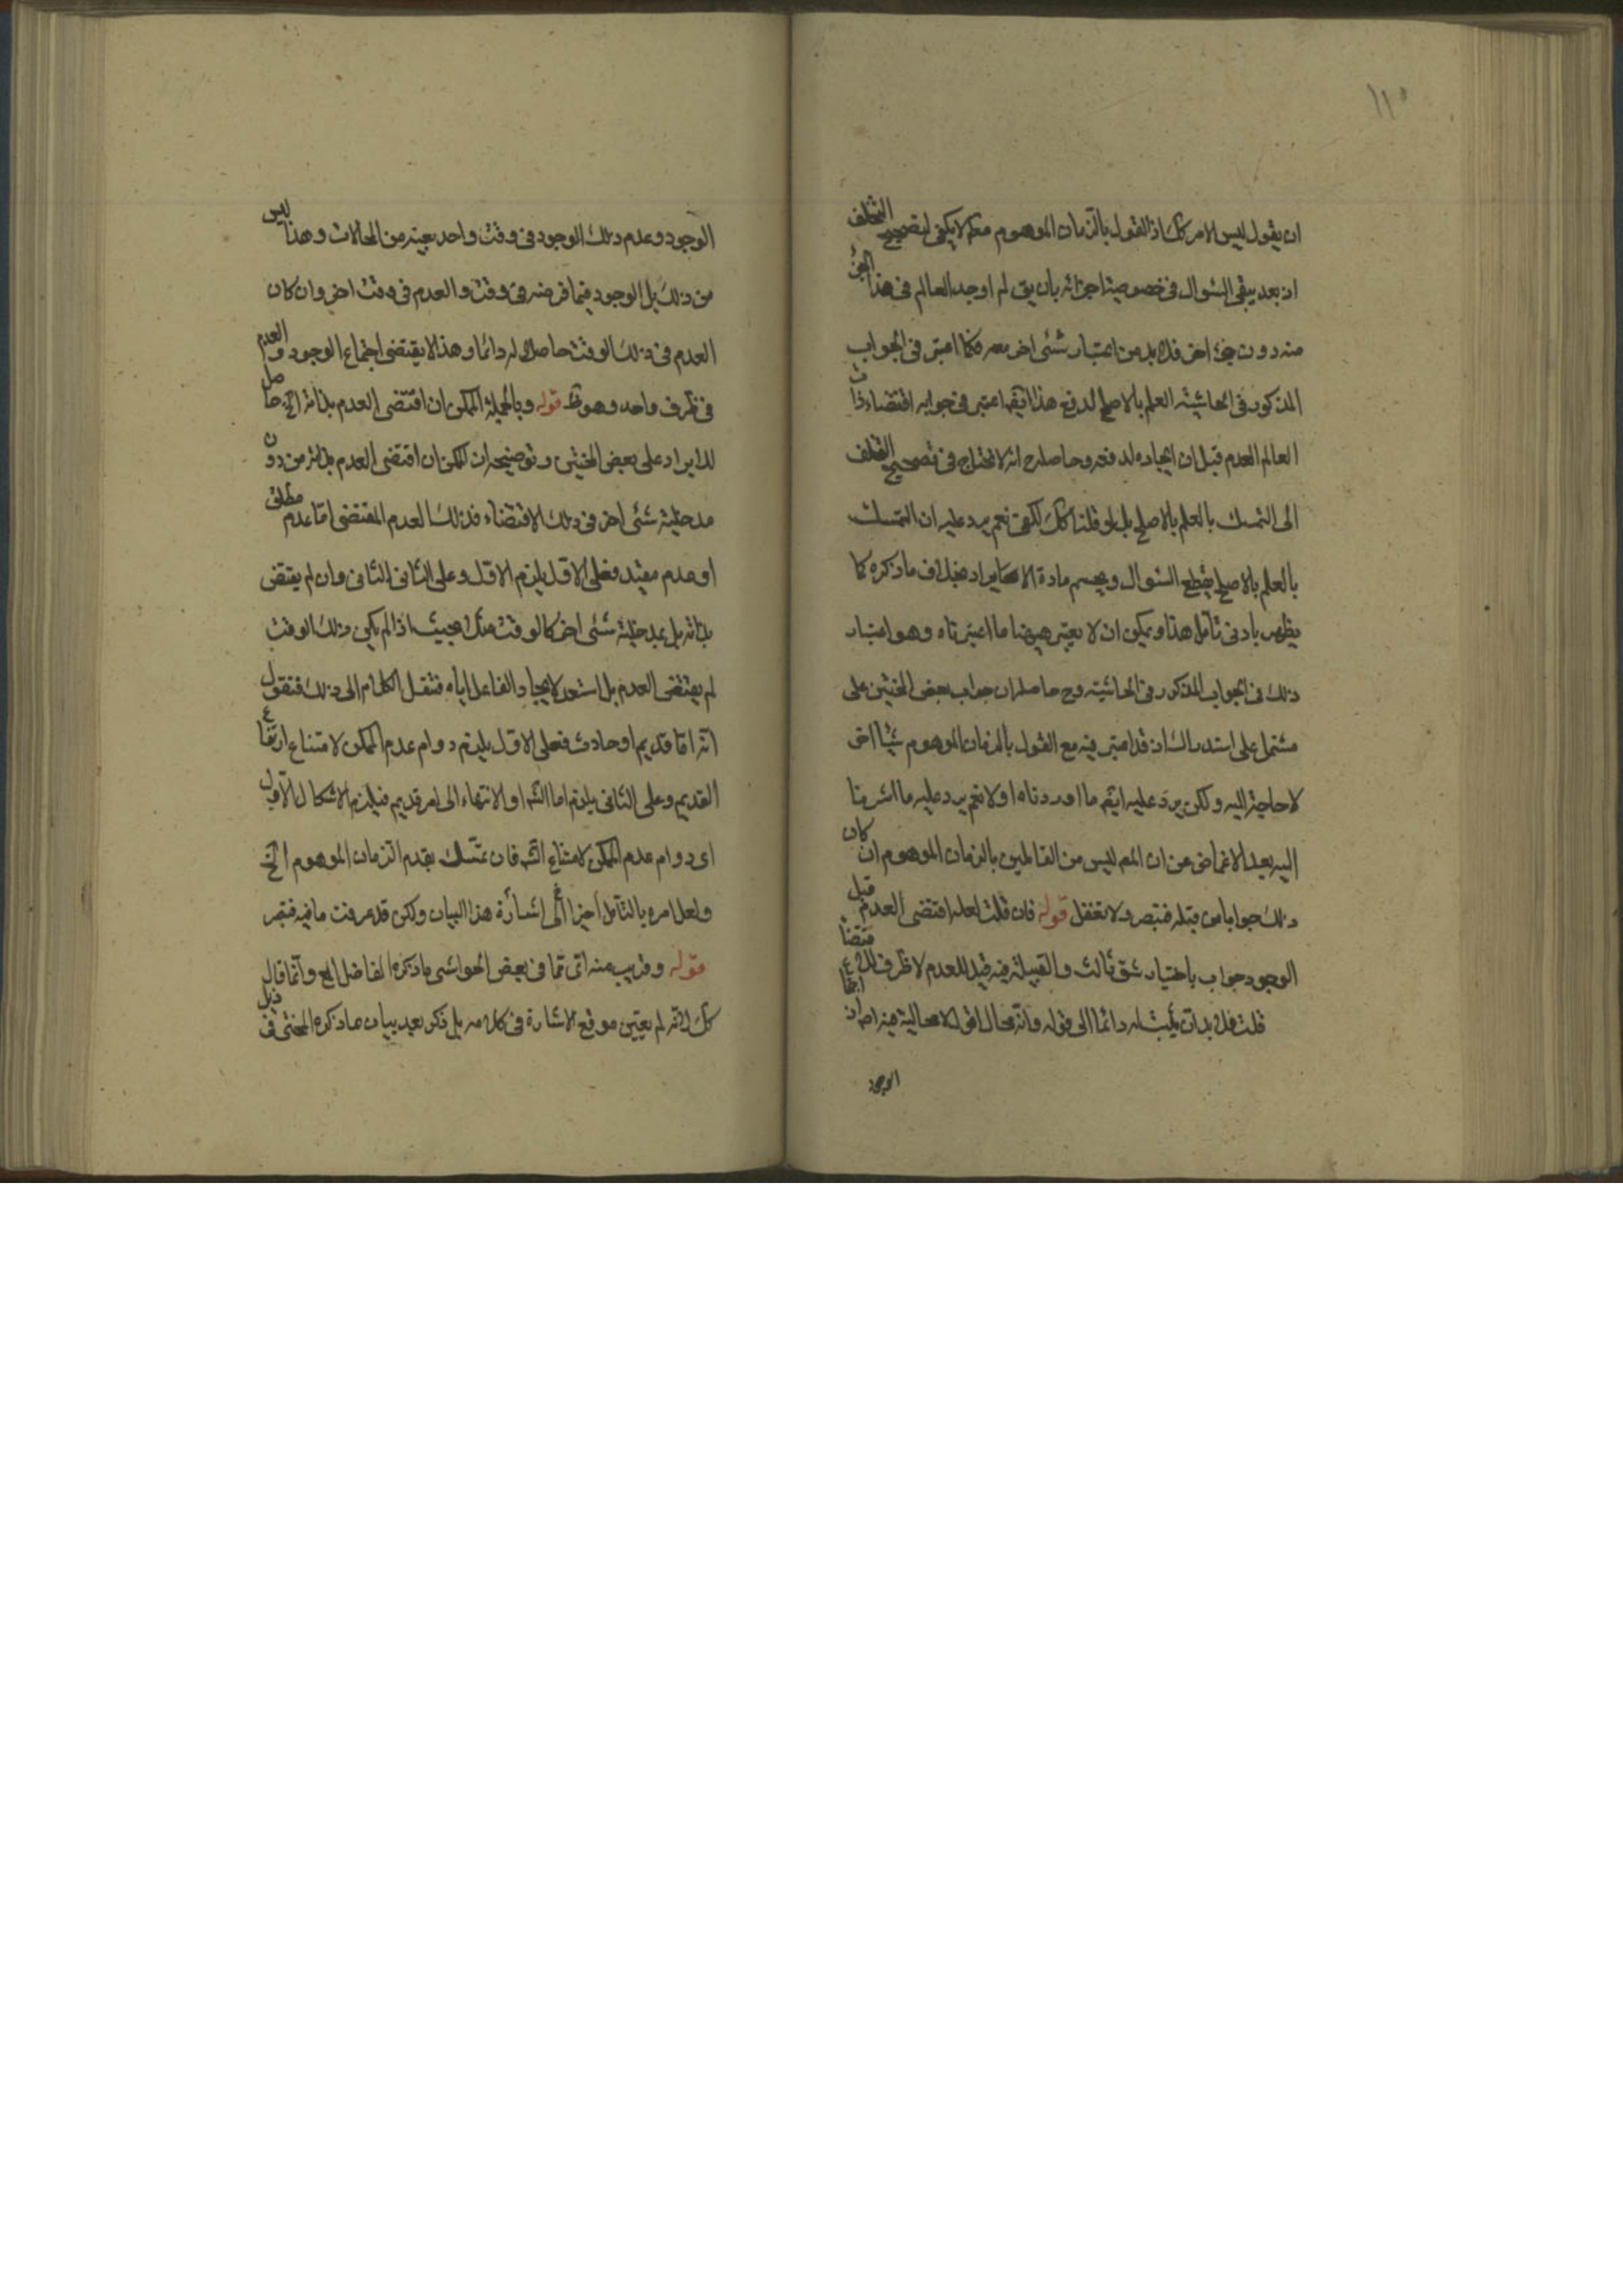 ١١٠
ان يقول ليس الامر كك اذ القول بالزمان الموهوم لا يكفى لتصحيح التخلف
اذ بعد يبقى السؤال فى خصوصية اجزائه بان يق لم اوجد العالم فى هذا الجزء
منه دون جزء اخر فلا بد من اعتبار شئ اخر معه فكما اعتبر فى الجواب
المذكور فى الحاشية العلم بالاصلح لدفع هذا ايضا اعتبر فى جوابه اقتضاء ذات
العالم العدم قبل ان ايجاده لدفعه وحاصله انه لا نحتاج فى تصحيح التخلف
الى التمسك بالعلم بالاصلح بل لو قلنا كك لكفى نعم يرد عليه ان التمسك
بالعلم بالاصلح يقطع السؤال ويحسم مادة الايراد بخلاف ما ذكره كما
يظهر بادنى تأمل هذا ويمكن ان لا يعتبر ههنا ما اعتبرناه وهو اعتبار
ذلك فى الجواب المذكور فى الحاشية وح حاصله ان جواب بعض المحشين على
مشتمل على استدراك اذ قد اعتبر فيه مع القول بالزمان الموهوم شيئا اخر
لا حاجة اليه ولكن يرد عليه ايضا ما اوردناه اولا نعم يرد عليه ما اشرنا
اليه بعد الاغماض عن ان المم ليس من القائلين بالزمان الموهوم ان كان
ذلك جوابا من قبله فتبصر ولا تغفل قوله فان قلت لعله اقتضى العدم قبل
الوجود جواب باختيار شق ثالث والقبيلة فيه قيد للعدم لا ظرف للاقتضاء
قلت فلا بد ان يثبت له دائما الى قوله وانه محال اقول الامحالية فيه اصلا اذ اجتماع
الوجود
الوجود وعدم ذلك الوجود فى وقت واحد بعينه من المحالات وهذا ليس
من ذلك بل الوجود فيما فرضنه فى وقت والعدم فى وقت اخر وان كان
العدم فى ذلك الوقت حاصلا له دائما وهذا لا يقتضى اجتماع الوجود والعدم
فى ظرف واحد وهو ظ قوله وبالجملة الممكن ان اقتضى العدم بذاته الخ حاصل
للايراد على بعض المحشين وتوضيحه ان الممكن ان اقتضى العدم بذاته من دون
مدخلية شئ اخر فى ذلك الاقتضاء فذلك العدم المقتضى اما عدم مطلق
او عدم مقيد فعلى الاول يلزم الاول وعلى الثانى الثانى وان لم يقتض
بذاته بل بمدخلية شئ اخر كالوقت مثلا بحيث اذا لم يكن ذلك الوقت
لم يقتضى العدم بل استعد لايجاد الفاعل اياه فننقل الكلام الى ذلك فنقول
انه اما قديم او حادث فعلى الاول يلزم دوام عدم الممكن لامتناع ارتفاع
القديم وعلى الثانى يلزم اما التسـ او الانتهاء الى امر قديم فيلزم الاشكال الاول
اى دوام عدم الممكن لامتناع التسـ فان تمسك بقدم الزمان الموهوم الخ
ولعل امره بالتأمل اخيرا الى اشارة هذا البيان ولكن قد عرفت ما فيه فتبصر
قوله وقريب منه اتى مما فى بعض الحواشى ما ذكره الفاضل الخ وانما قال
كك لانه لم يتعين موقع الاشارة فى كلامه بل ذكر بعد بيان ما ذكره المحشى فى ذيل